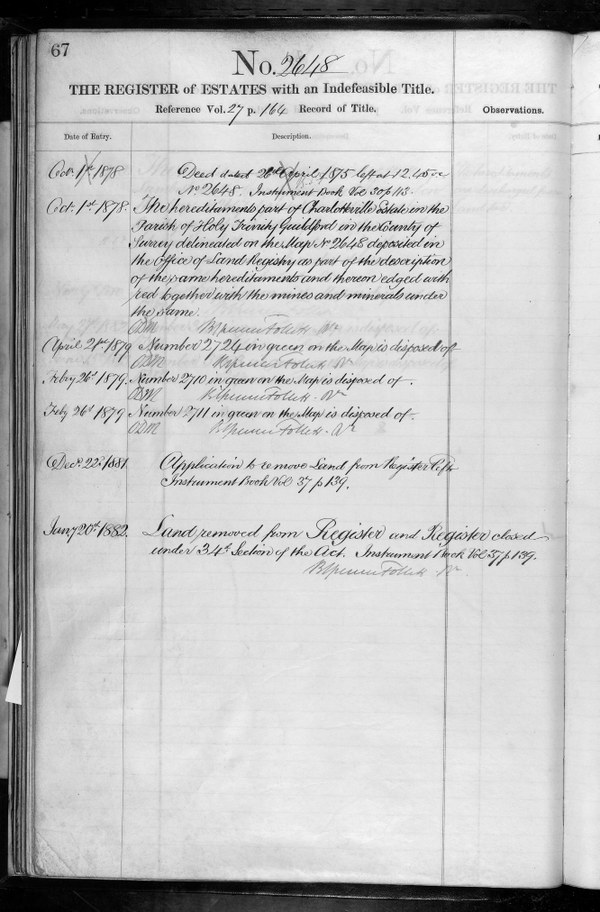 67
No. 2648
THE REGISTER of ESTATES with an Indefeasible Title.
Reference Vol. 27 p. 164 Record of Title.
Observations.
Date of Entry.
Description.
Octr. 1st 1878
Deed dated 26th April 1875 left at 12.40
No 2648. Instrument Book Vol 30 p 113.
Oct. 1st 1878.
The hereditaments part of Charlotteville Estate in the
Parish of Holy Trinity Guildford in the County of
Surrey delineated on the Map No 2648 deposited in
the Office of Land Registry as part of the description
of the same hereditaments and thereon edged with
red together with the mines and minerals under
the same.
B Spencer Follett
April 21st 1879
Number 2724 in green on the Map is disposed of
B Spencer Follett
Febry 26th 1879.
Number 2710 in green on the Map is disposed of.
B Spencer Follett
Feby 26th 1879
Number 2711 in green on the Map is disposed of.
B Spencer Follett
Decr. 22d 1881.
Application to remove Land from Register left
Instrument Book Vol 37 p 139.
Jany 20th 1882.
Land removed from Register and Register closed
under 34th Section of the Act. Instrument Book Vol 37 p 139.
B Spencer Follett